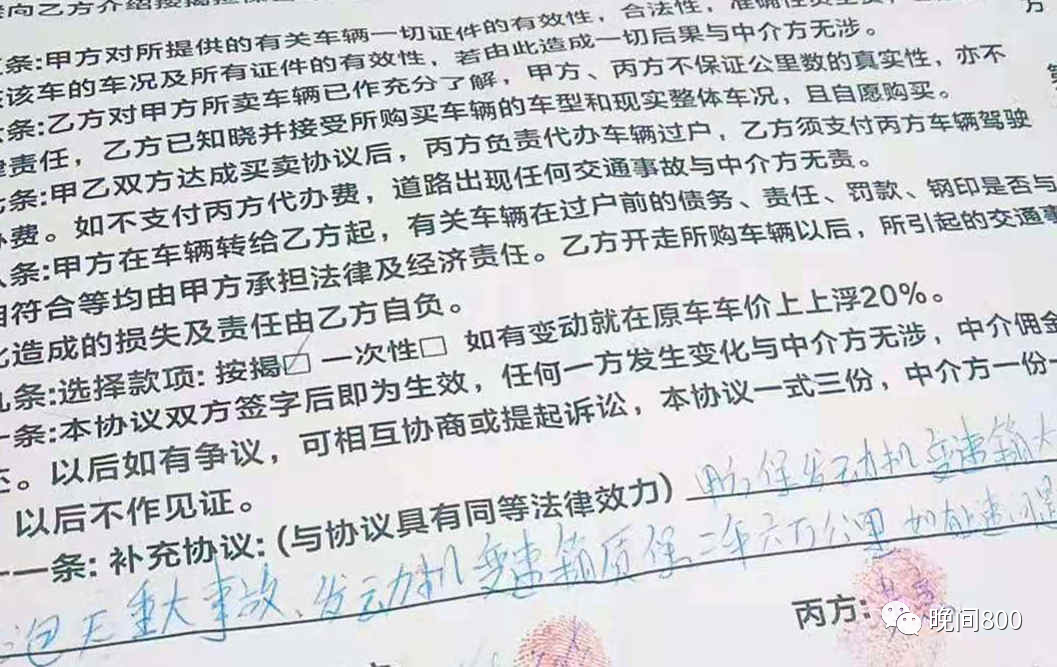 向乙方介绍按揭担保
条:甲方对所提供的有关车辆一切证件的有效性,合法性,准确性负全责,
该车的车况及所有证件的有效性,若由此造成一切后果与中介方无涉。
条:乙方对甲方所卖车辆已作充分了解,甲方、丙方不保证公里数的真实性,亦不
责任,乙方已知晓并接受所购买车辆的车型和现实整体车况,且自愿购买。
条:甲乙双方达成买卖协议后,丙方负责代办车辆过户,乙方须支付丙方车辆驾驶
费。如不支付丙方代办费,道路出现任何交通事故与中介方无责。
条:甲方在车辆转给乙方起,有关车辆在过户前的债务、责任、罚款、钢印是否与
相符合等均由甲方承担法律及经济责任。乙方开走所购车辆以后,所引起的交通事
此造成的损失及责任由乙方自负。
条:选择款项:按揭☑ 一次性□ 如有变动就在原车车价上上浮20%。
一条:本协议双方签字后即为生效,任何一方发生变化与中介方无涉,中介佣金
。以后如有争议,可相互协商或提起诉讼,本协议一式三份,中介方一份
以后不作见证。
一条:补充协议:(与协议具有同等法律效力) 甲方保发动机变速箱大
包无重大事故、发动机变速箱质保二年六万公里 如
丙方:
晚间800